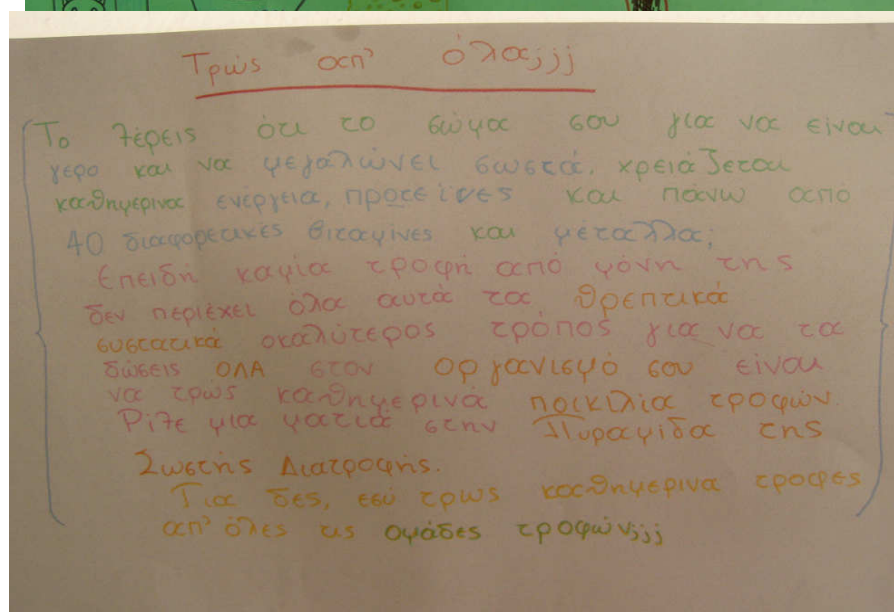 Τρώς απ' όλα;;;
Το ξέρεις ότι το σώμα σου για να είναι
γερο και να μεγαλώνει σωστά, χρειάζεται
καθημερινα ενέργεια, πρωτείνες και πάνω από
40 διαφορετικές βιταμίνες και μέταλλα;
Επειδή καμία τροφή από μόνη της
δεν περιέχει όλα αυτά τα θρεπτικά
συστατικά ο καλύτερος τρόπος για να τα
δώσεις ΟΛΑ στον οργανισμό σου είναι
να τρώς καθημερινά ποικιλία τροφών.
Ρίξε μια ματιά στην Πυραμίδα της
Σωστής Διατροφής.
Για δες, εσύ τρως καθημερινα τροφες
απ' όλες τις ομάδες τροφών;;;